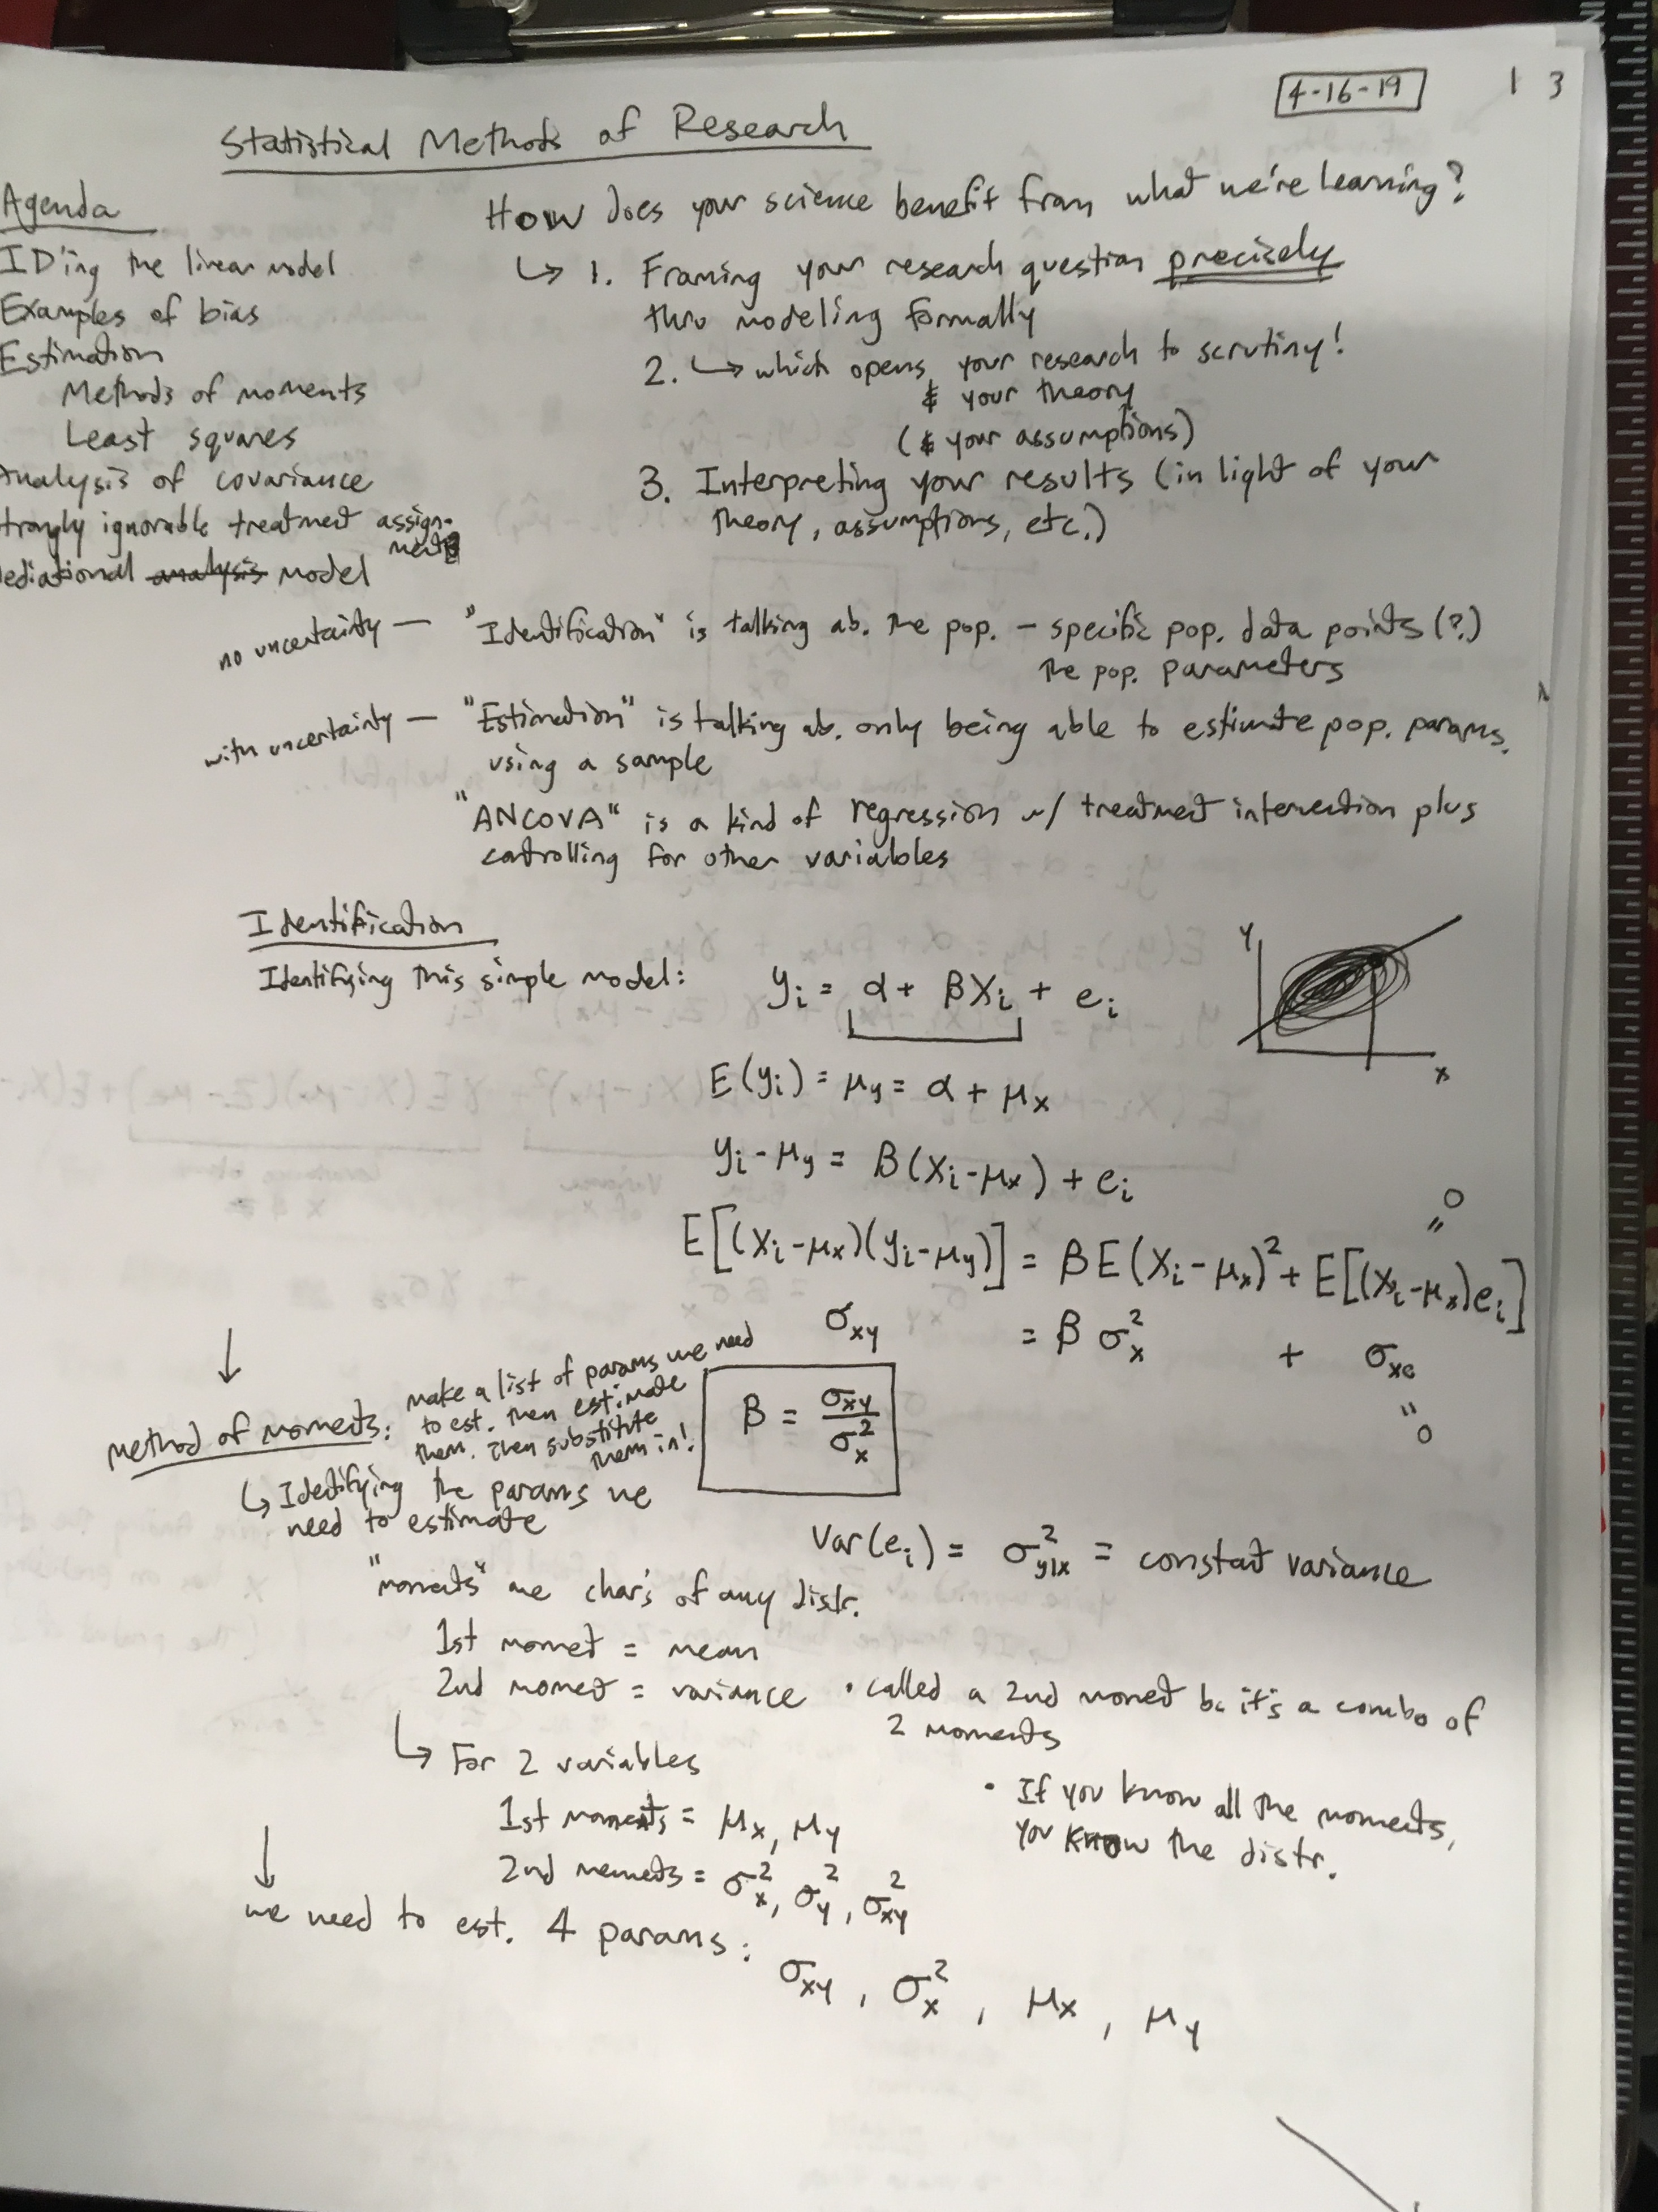 4-16-19
1 3
Statistical Methods of Research
Agenda
ID'ing the linear model
Examples of bias
Estimation
Methods of moments
Least squares
Analysis of covariance
trongly ignorable treatment assign-
ment
ediational analysis model
How does your science benefit from what we're learning?
↳ 1. Framing your research question precisely
thru modeling formally
2. ↳ which opens your research to scrutiny!
& your theory
(& your assumptions)
3. Interpreting your results (in light of your
theory, assumptions, etc.)
no uncertainty — "Identification" is talking ab. the pop. - specific pop. data points (?)
the pop. parameters
with uncertainty — "Estimation" is talking ab. only being able to estimate pop. params.
using a sample
"ANCOVA" is a kind of regression w/ treatment intervention plus
controlling for other variables
Identification
Identifying this simple model: yᵢ = α + βXᵢ + eᵢ
y
x
E(yᵢ) = μy = α + μx
yᵢ - μy = β(Xᵢ - μx) + eᵢ
0
"
E[(Xᵢ - μx)(yᵢ - μy)] = βE(Xᵢ - μx)² + E[(Xᵢ - μx)eᵢ]
σxy = β σ²x + σxe
"
0
↓
method of moments: make a list of params we need
to est. then estimate
them. Then substitute
them in!
β = σxy / σ²x
↳ Identifying the params we
need to estimate
Var(eᵢ) = σ²y|x = constant variance
"moments" are char's of any distr.
1st moment = mean
2nd moment = variance • called a 2nd moment bc it's a combo of
2 moments
↳ For 2 variables
1st moments = μx, μy
2nd moments = σ²x, σ²y, σ²xy
• If you know all the moments,
you know the distr.
↓
we need to est. 4 params:
σxy, σ²x, μx, μy